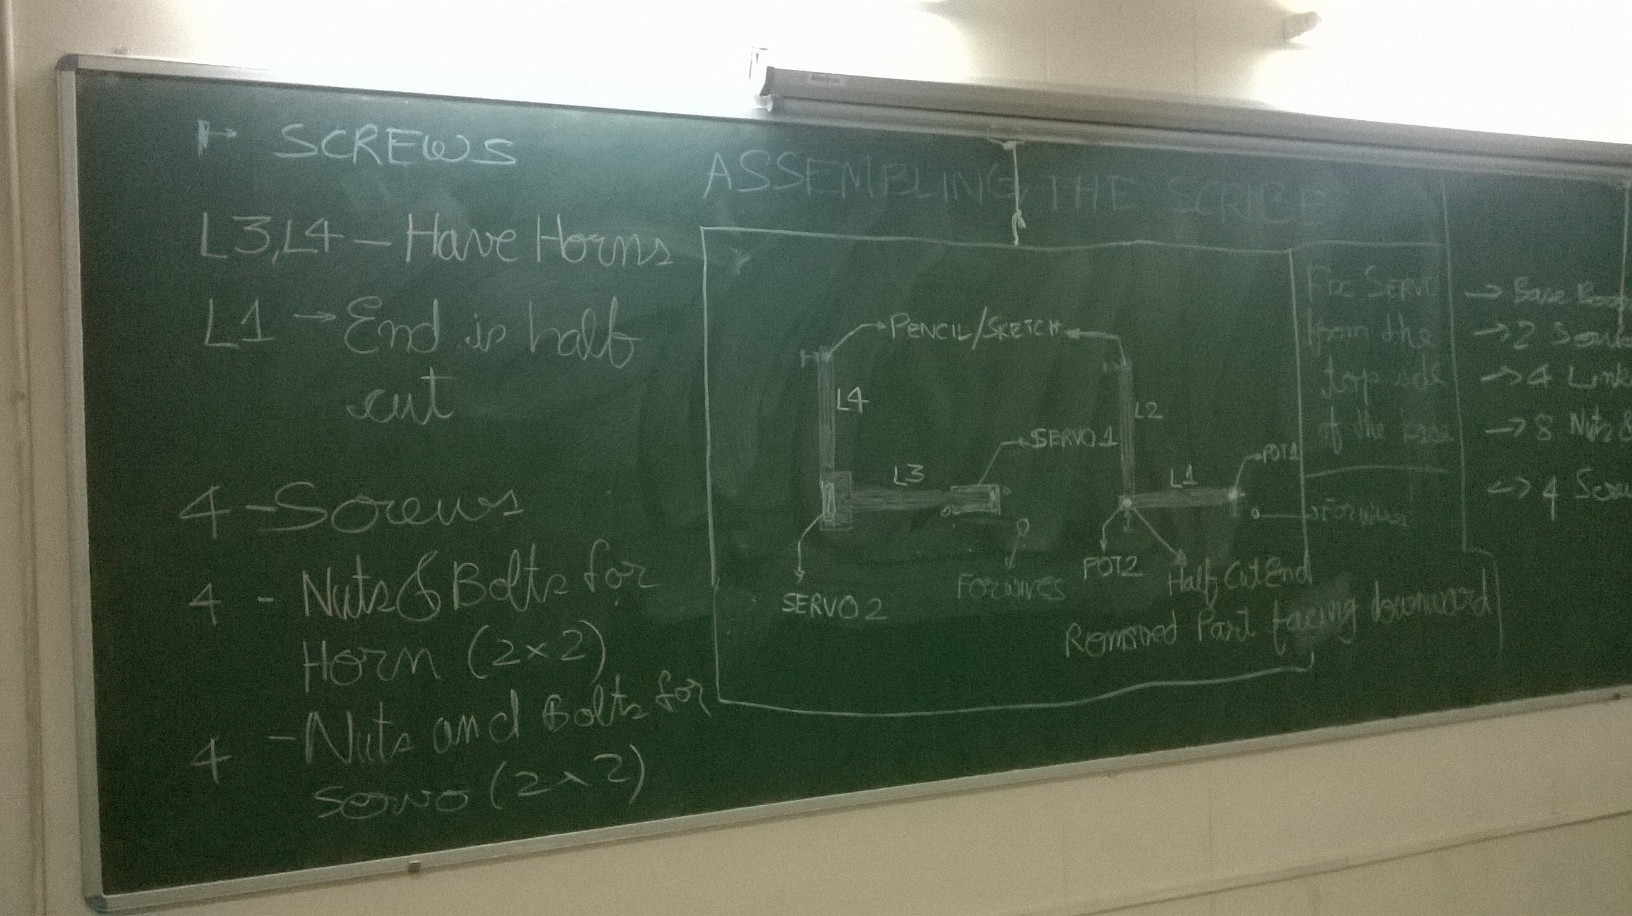 SCREWS
L3,L4 - Have Horns
L1 → End is half
cut
4 - Screws
4 - Nuts & Bolts for
Horn (2×2)
4 - Nuts and Bolts for
Servo (2×2)
ASSEMBLING THE SCRIBE
PENCIL/SKETCH
L4
L2
SERVO1
L3
L1
POT1
SERVO2
FOR WIRES
POT2
Half Cut End
Removed Part facing downward
FOR WIRES
Fix SERVO
from the
top side
of the
→ Base
→ 2
→ 4 Link
→ 8 Nuts &
→ 4 Screw